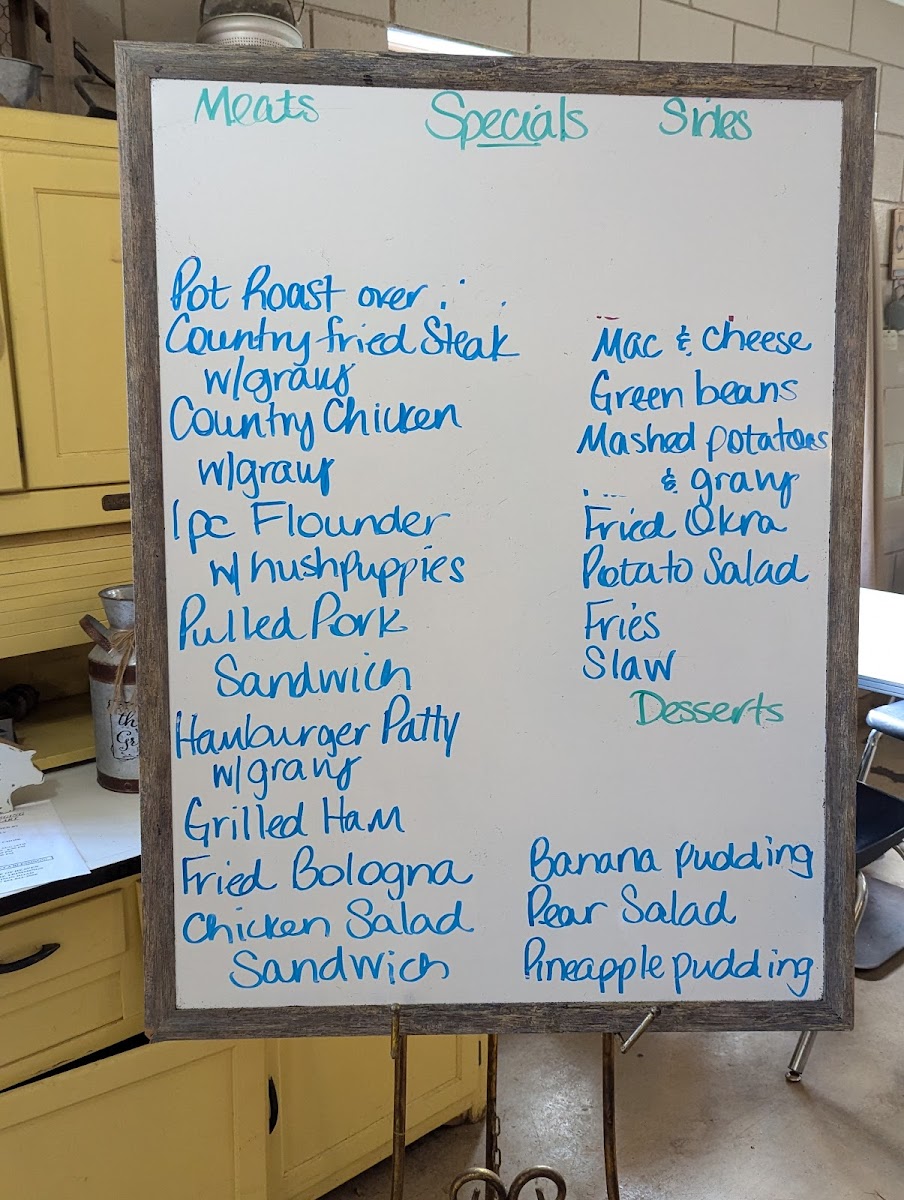 Meats
Specials
Sides
Pot Roast over
Country fried Steak
w/gravy
Country Chicken
w/gravy
1pc Flounder
w/hushpuppies
Pulled Pork
Sandwich
Hamburger Patty
w/gravy
Grilled Ham
Fried Bologna
Chicken Salad
Sandwich
Mac & cheese
Green beans
Mashed potatoes
& gravy
Fried Okra
Potato Salad
Fries
Slaw
Desserts
Banana pudding
Pear Salad
Pineapple pudding